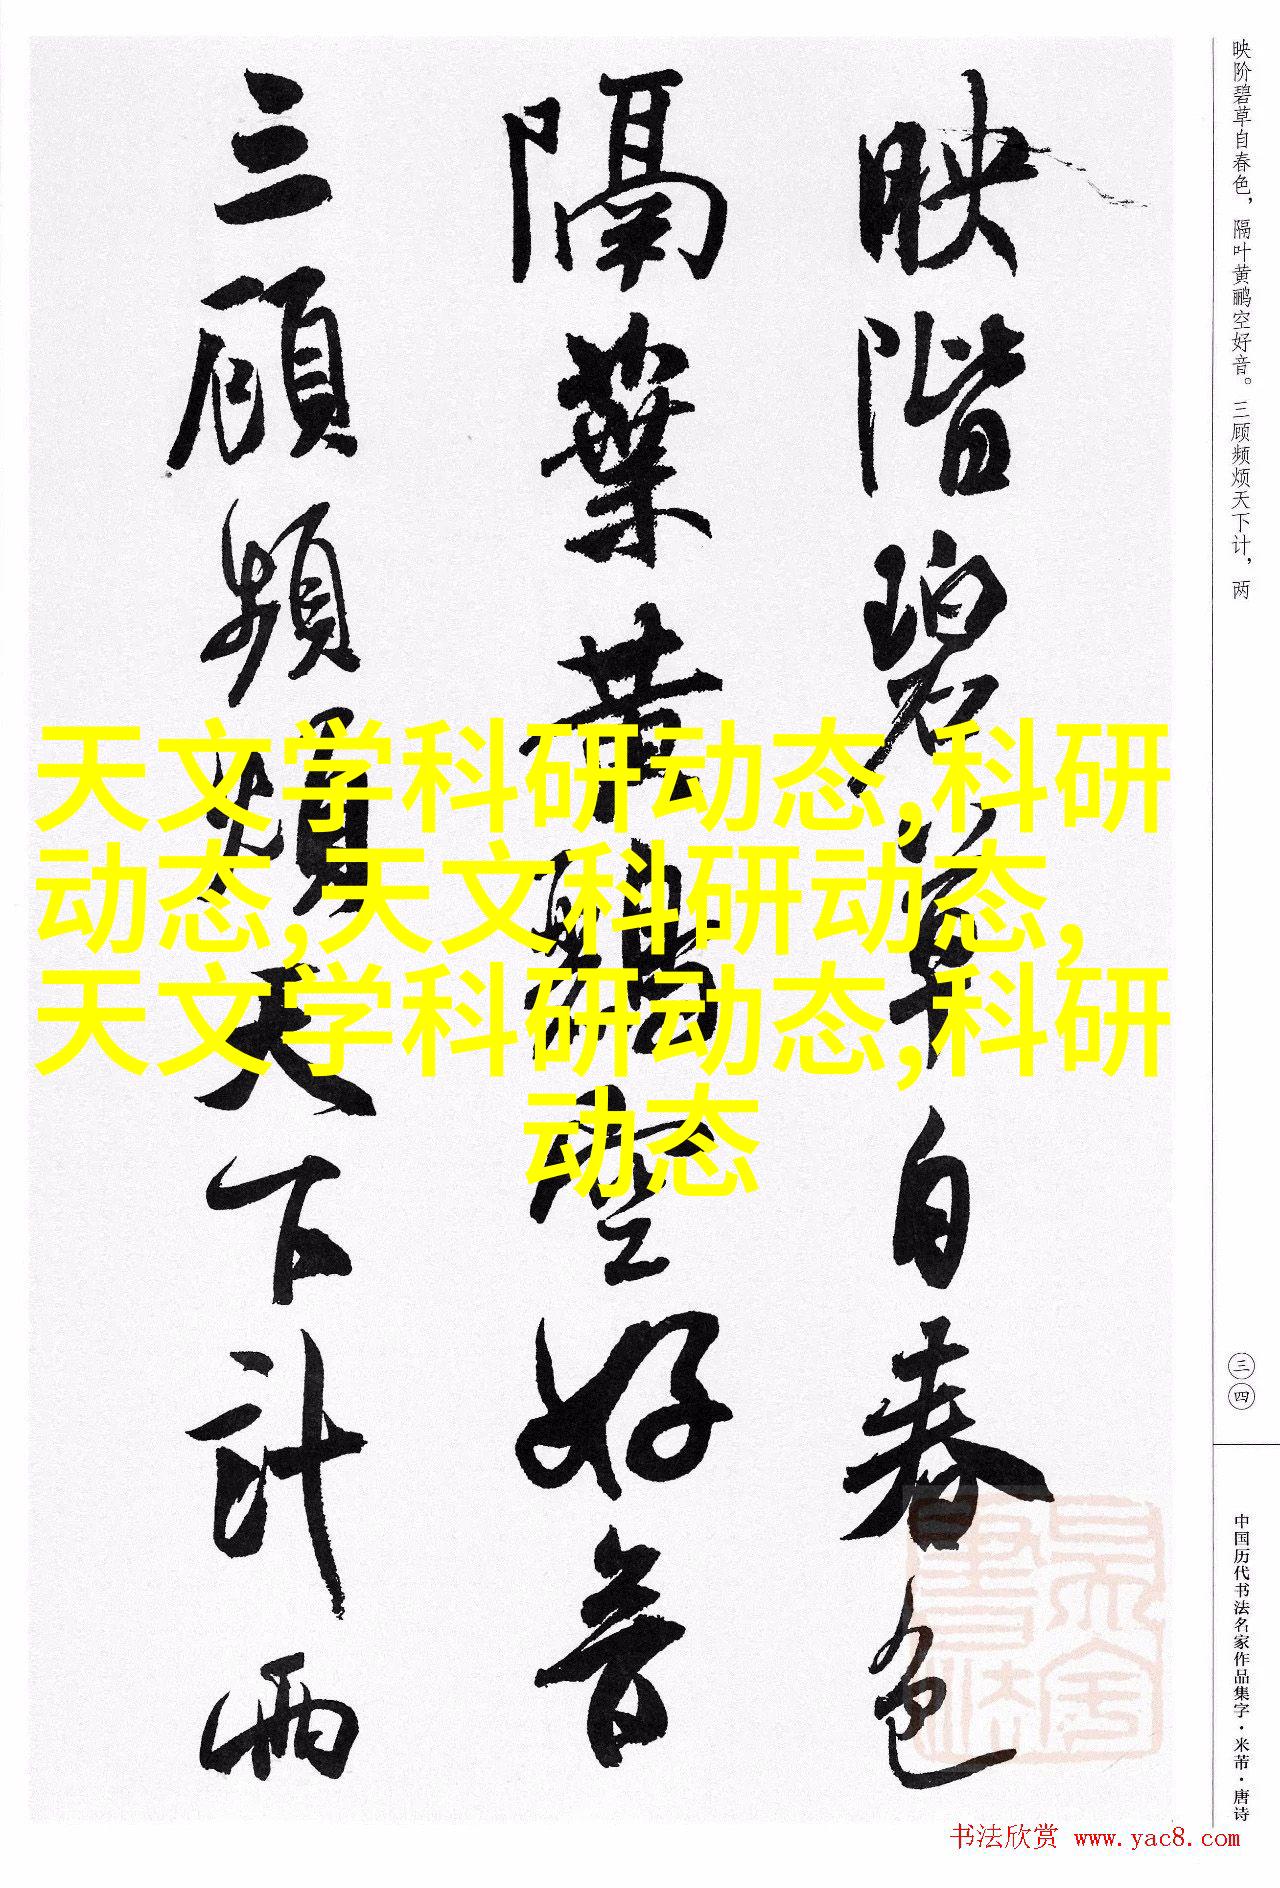 映階碧草自春色
隔葉黄鸝空好音
三顧頻煩天下計兩
映阶碧草自春色，隔叶黄鹂空好音。三顾频烦天下计，两
天文学科研动态,科研
动态,天文科研动态,
天文学科研动态,科研
动态
三四
中国历代书法名家作品集字·米芾·唐诗
书法欣赏 www.yac8.com